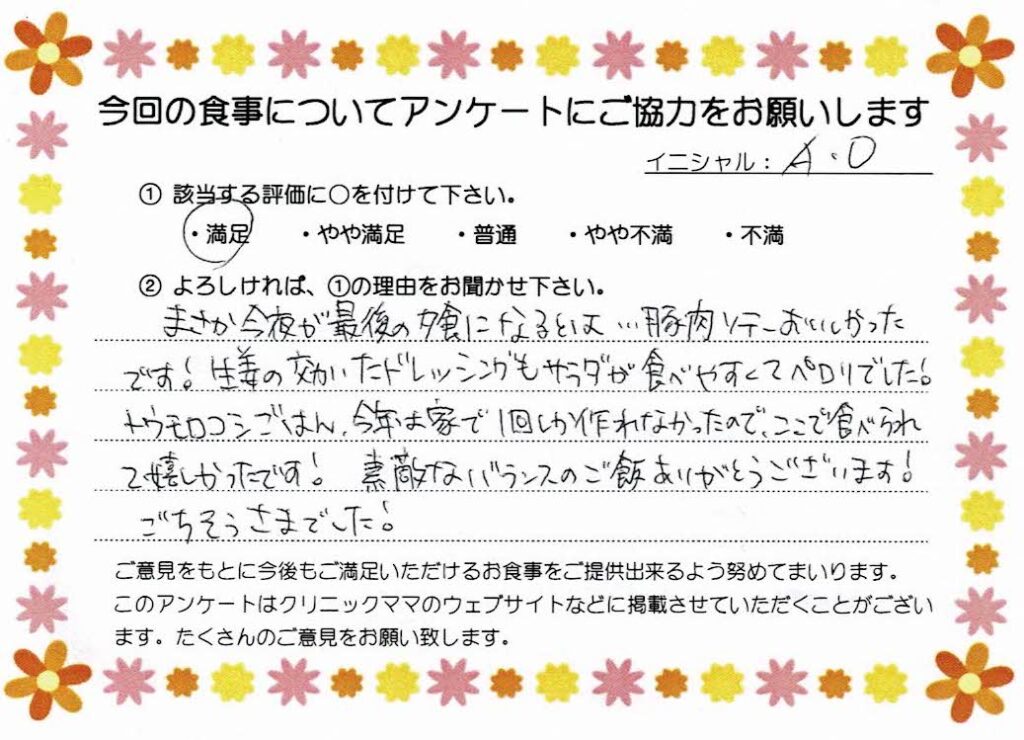 今回の食事についてアンケートにご協力をお願いします
イニシャル： A・O
① 該当する評価に○を付けて下さい。
・満足 ・やや満足 ・普通 ・やや不満 ・不満
② よろしければ、①の理由をお聞かせ下さい。
まさか今夜が最後の夕食になるとは…豚肉ソテーおいしかった
です！生姜の効いたドレッシングもサラダが食べやすくてペロリでした！
トウモロコシごはん、今年は家で1回しか作れなかったので、ここで食べられ
て嬉しかったです！ 素敵なバランスのご飯ありがとうございます！
ごちそうさまでした！
ご意見をもとに今後もご満足いただけるお食事をご提供出来るよう努めてまいります。
このアンケートはクリニックママのウェブサイトなどに掲載させていただくことがござい
ます。たくさんのご意見をお願い致します。